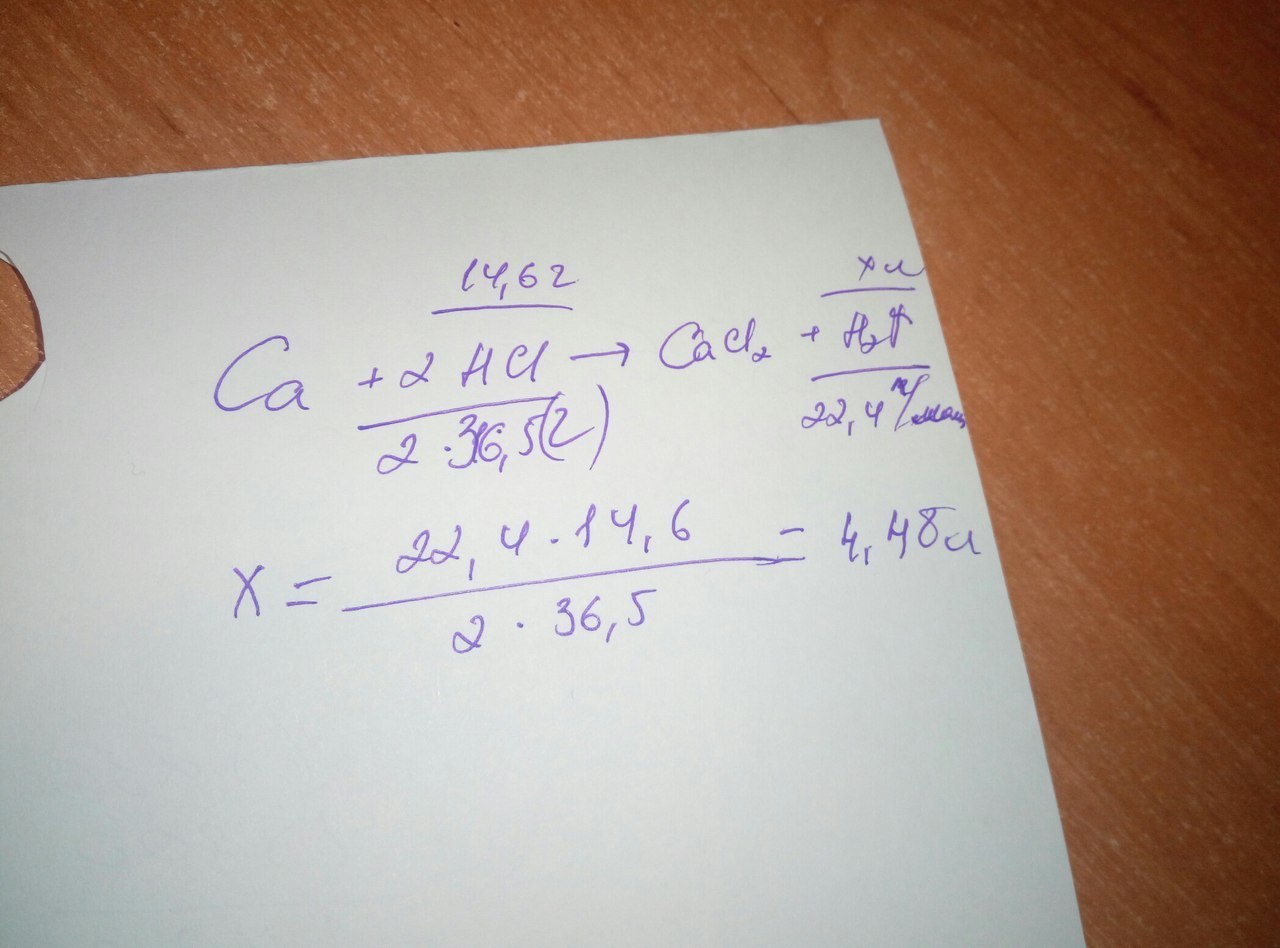 14,6г хл
Ca + 2 HCl → CaCl₂ + H₂↑
2 · 36,5(г) 22,4 л/моль
X = 22,4 · 14,6 / 2 · 36,5 = 4,48л